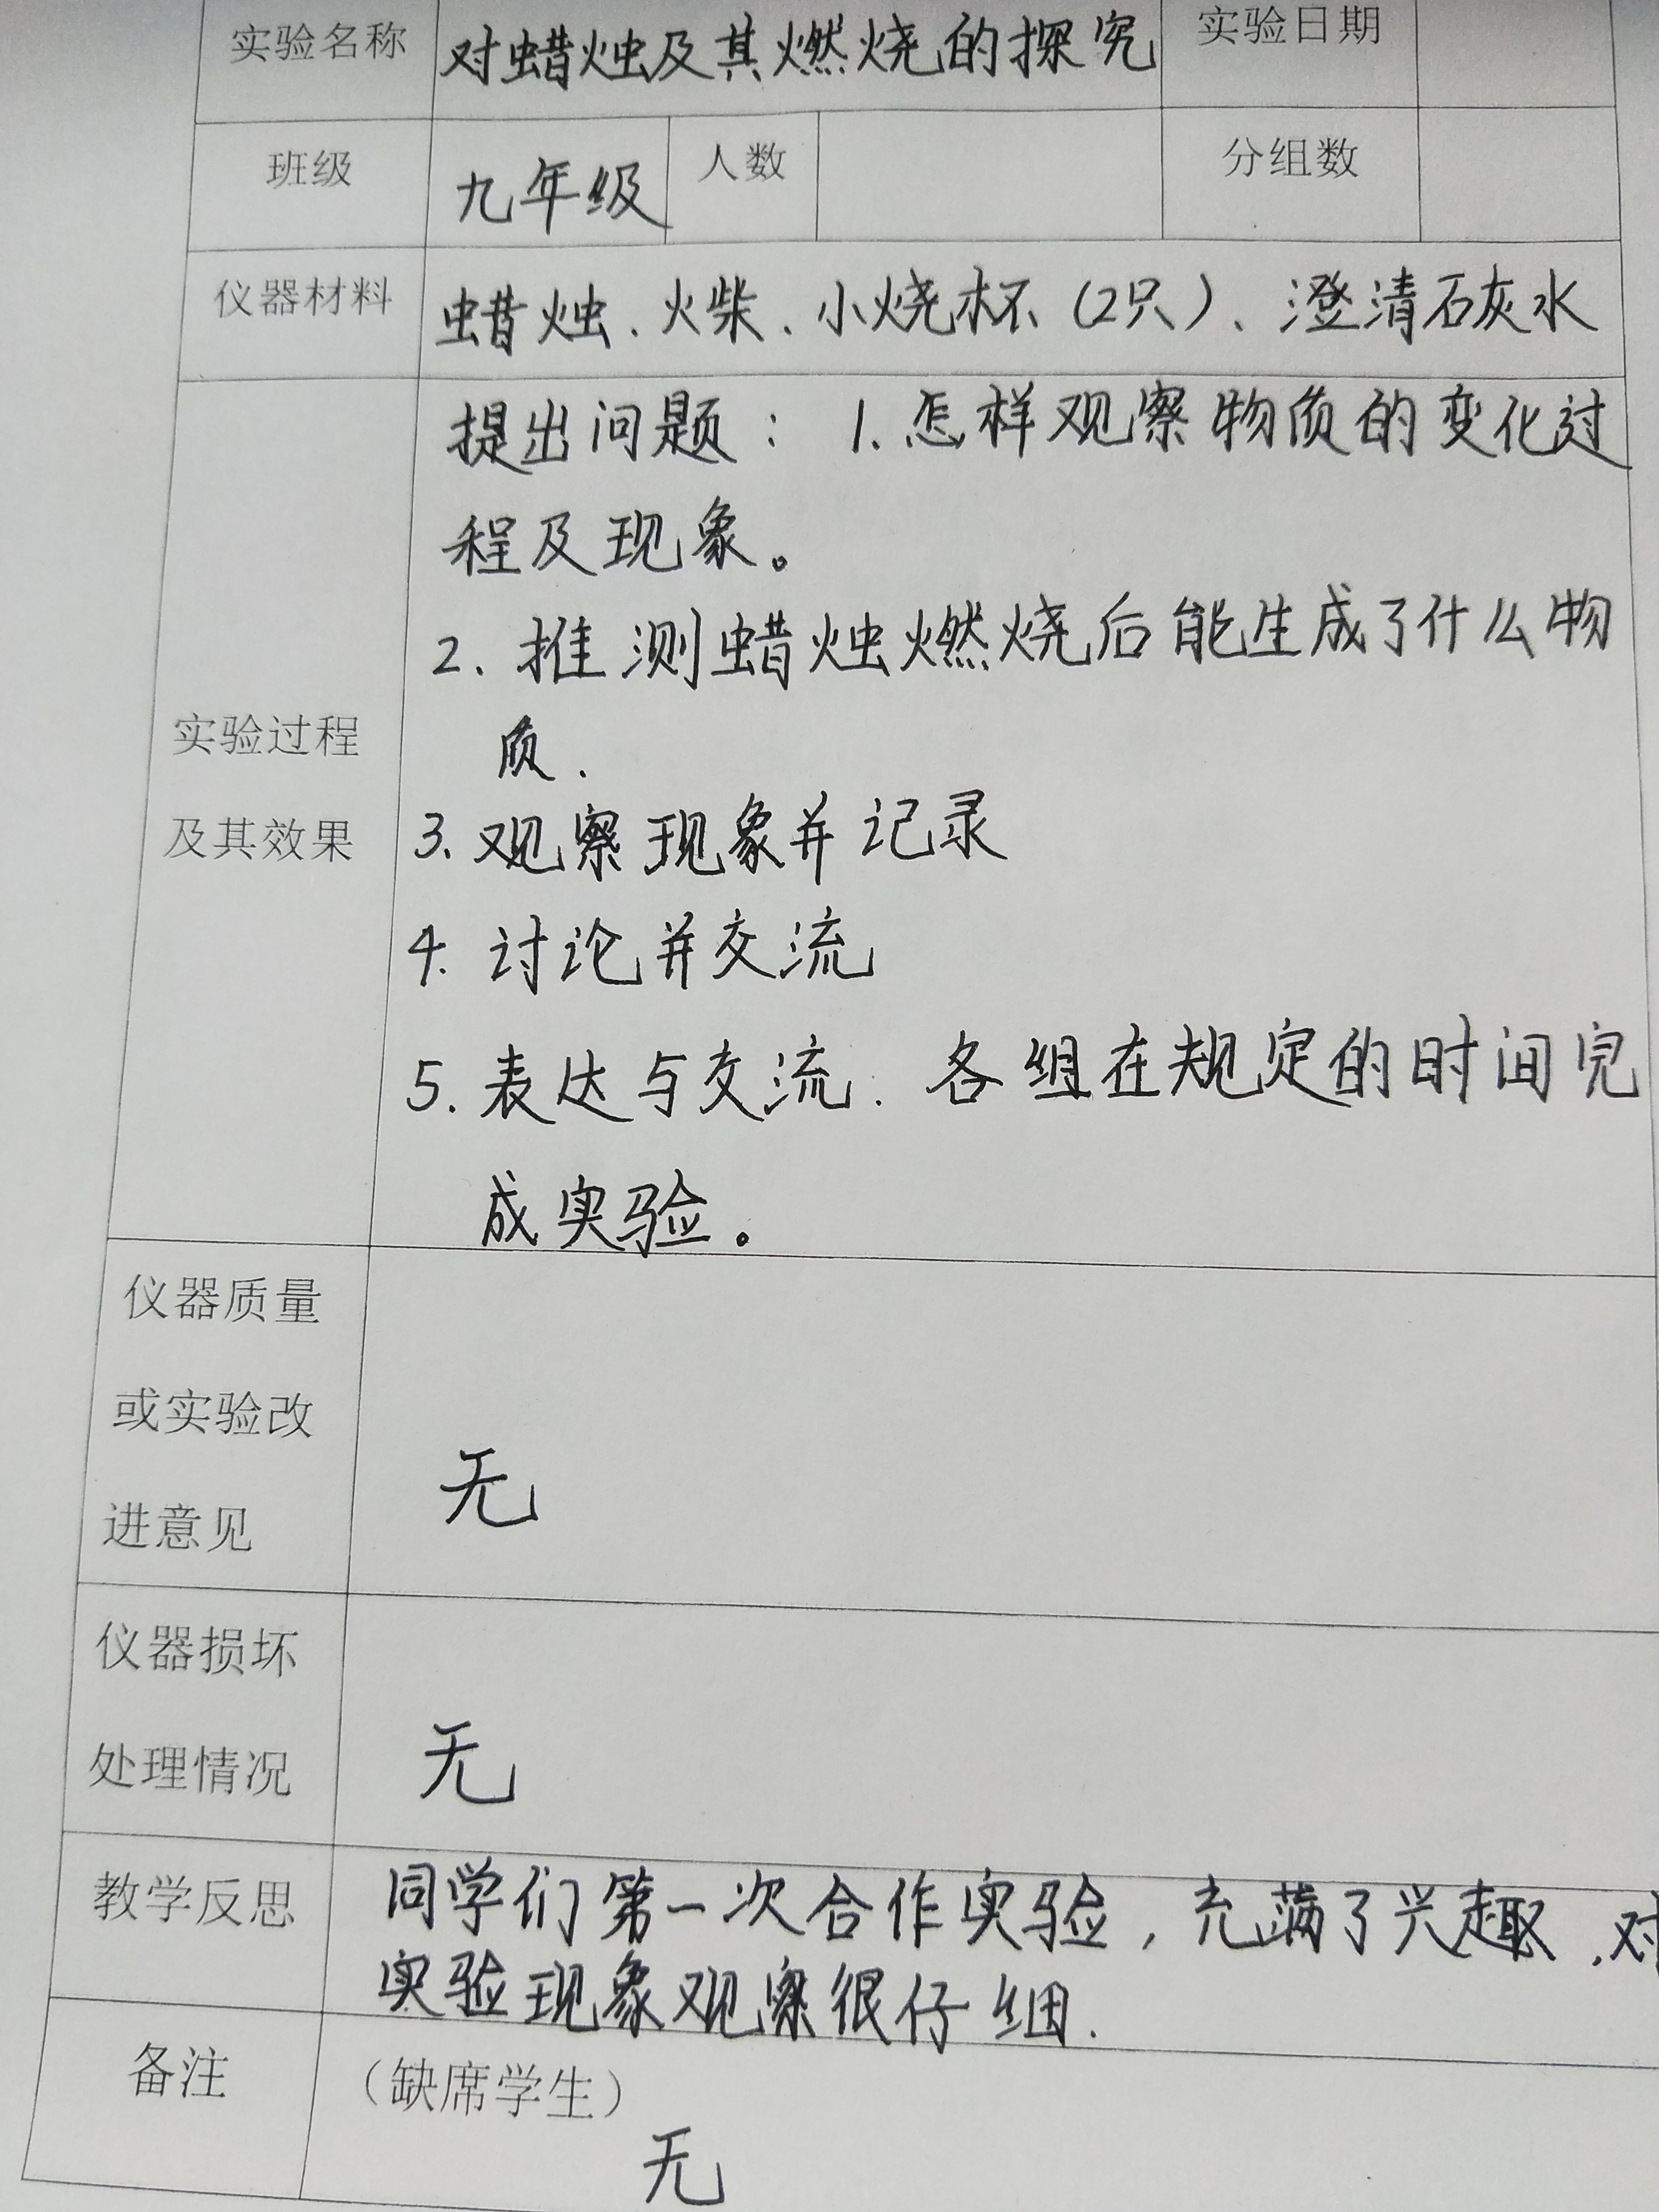 实验名称 对蜡烛及其燃烧的探究 实验日期
班级 九年级 人数 分组数
仪器材料 蜡烛、火柴、小烧杯(2只)、澄清石灰水
提出问题： 1.怎样观察物质的变化过
程及现象。
2. 推测蜡烛燃烧后能生成了什么物
质.
实验过程
及其效果
3. 观察现象并记录
4. 讨论并交流
5. 表达与交流: 各组在规定的时间完
成实验。
仪器质量
或实验改
进意见
无
仪器损坏
处理情况
无
教学反思 同学们第一次合作实验，充满了兴趣,对
实验现象观察很仔细.
备注 （缺席学生）
无